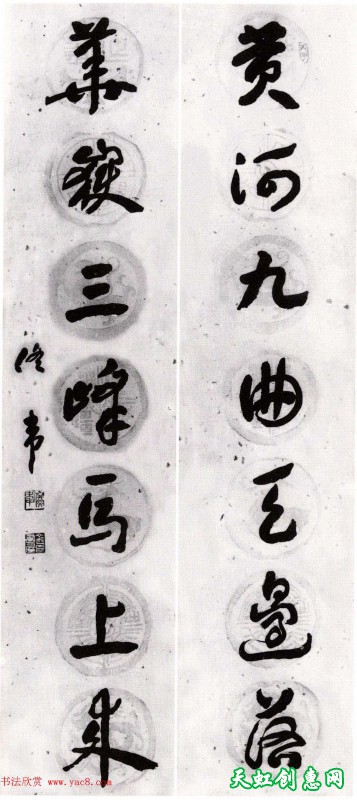 黄河九曲天邊落
華嶽三峰馬上来
佟韦
书法欣赏 www.yac8.com
天虹创惠网